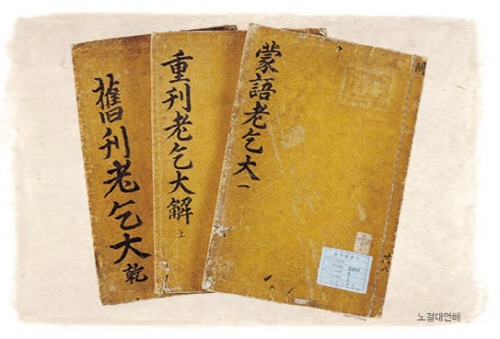 舊刊老乞大 乾
重刊老乞大解 上
蒙語老乞大 一
노걸대언해